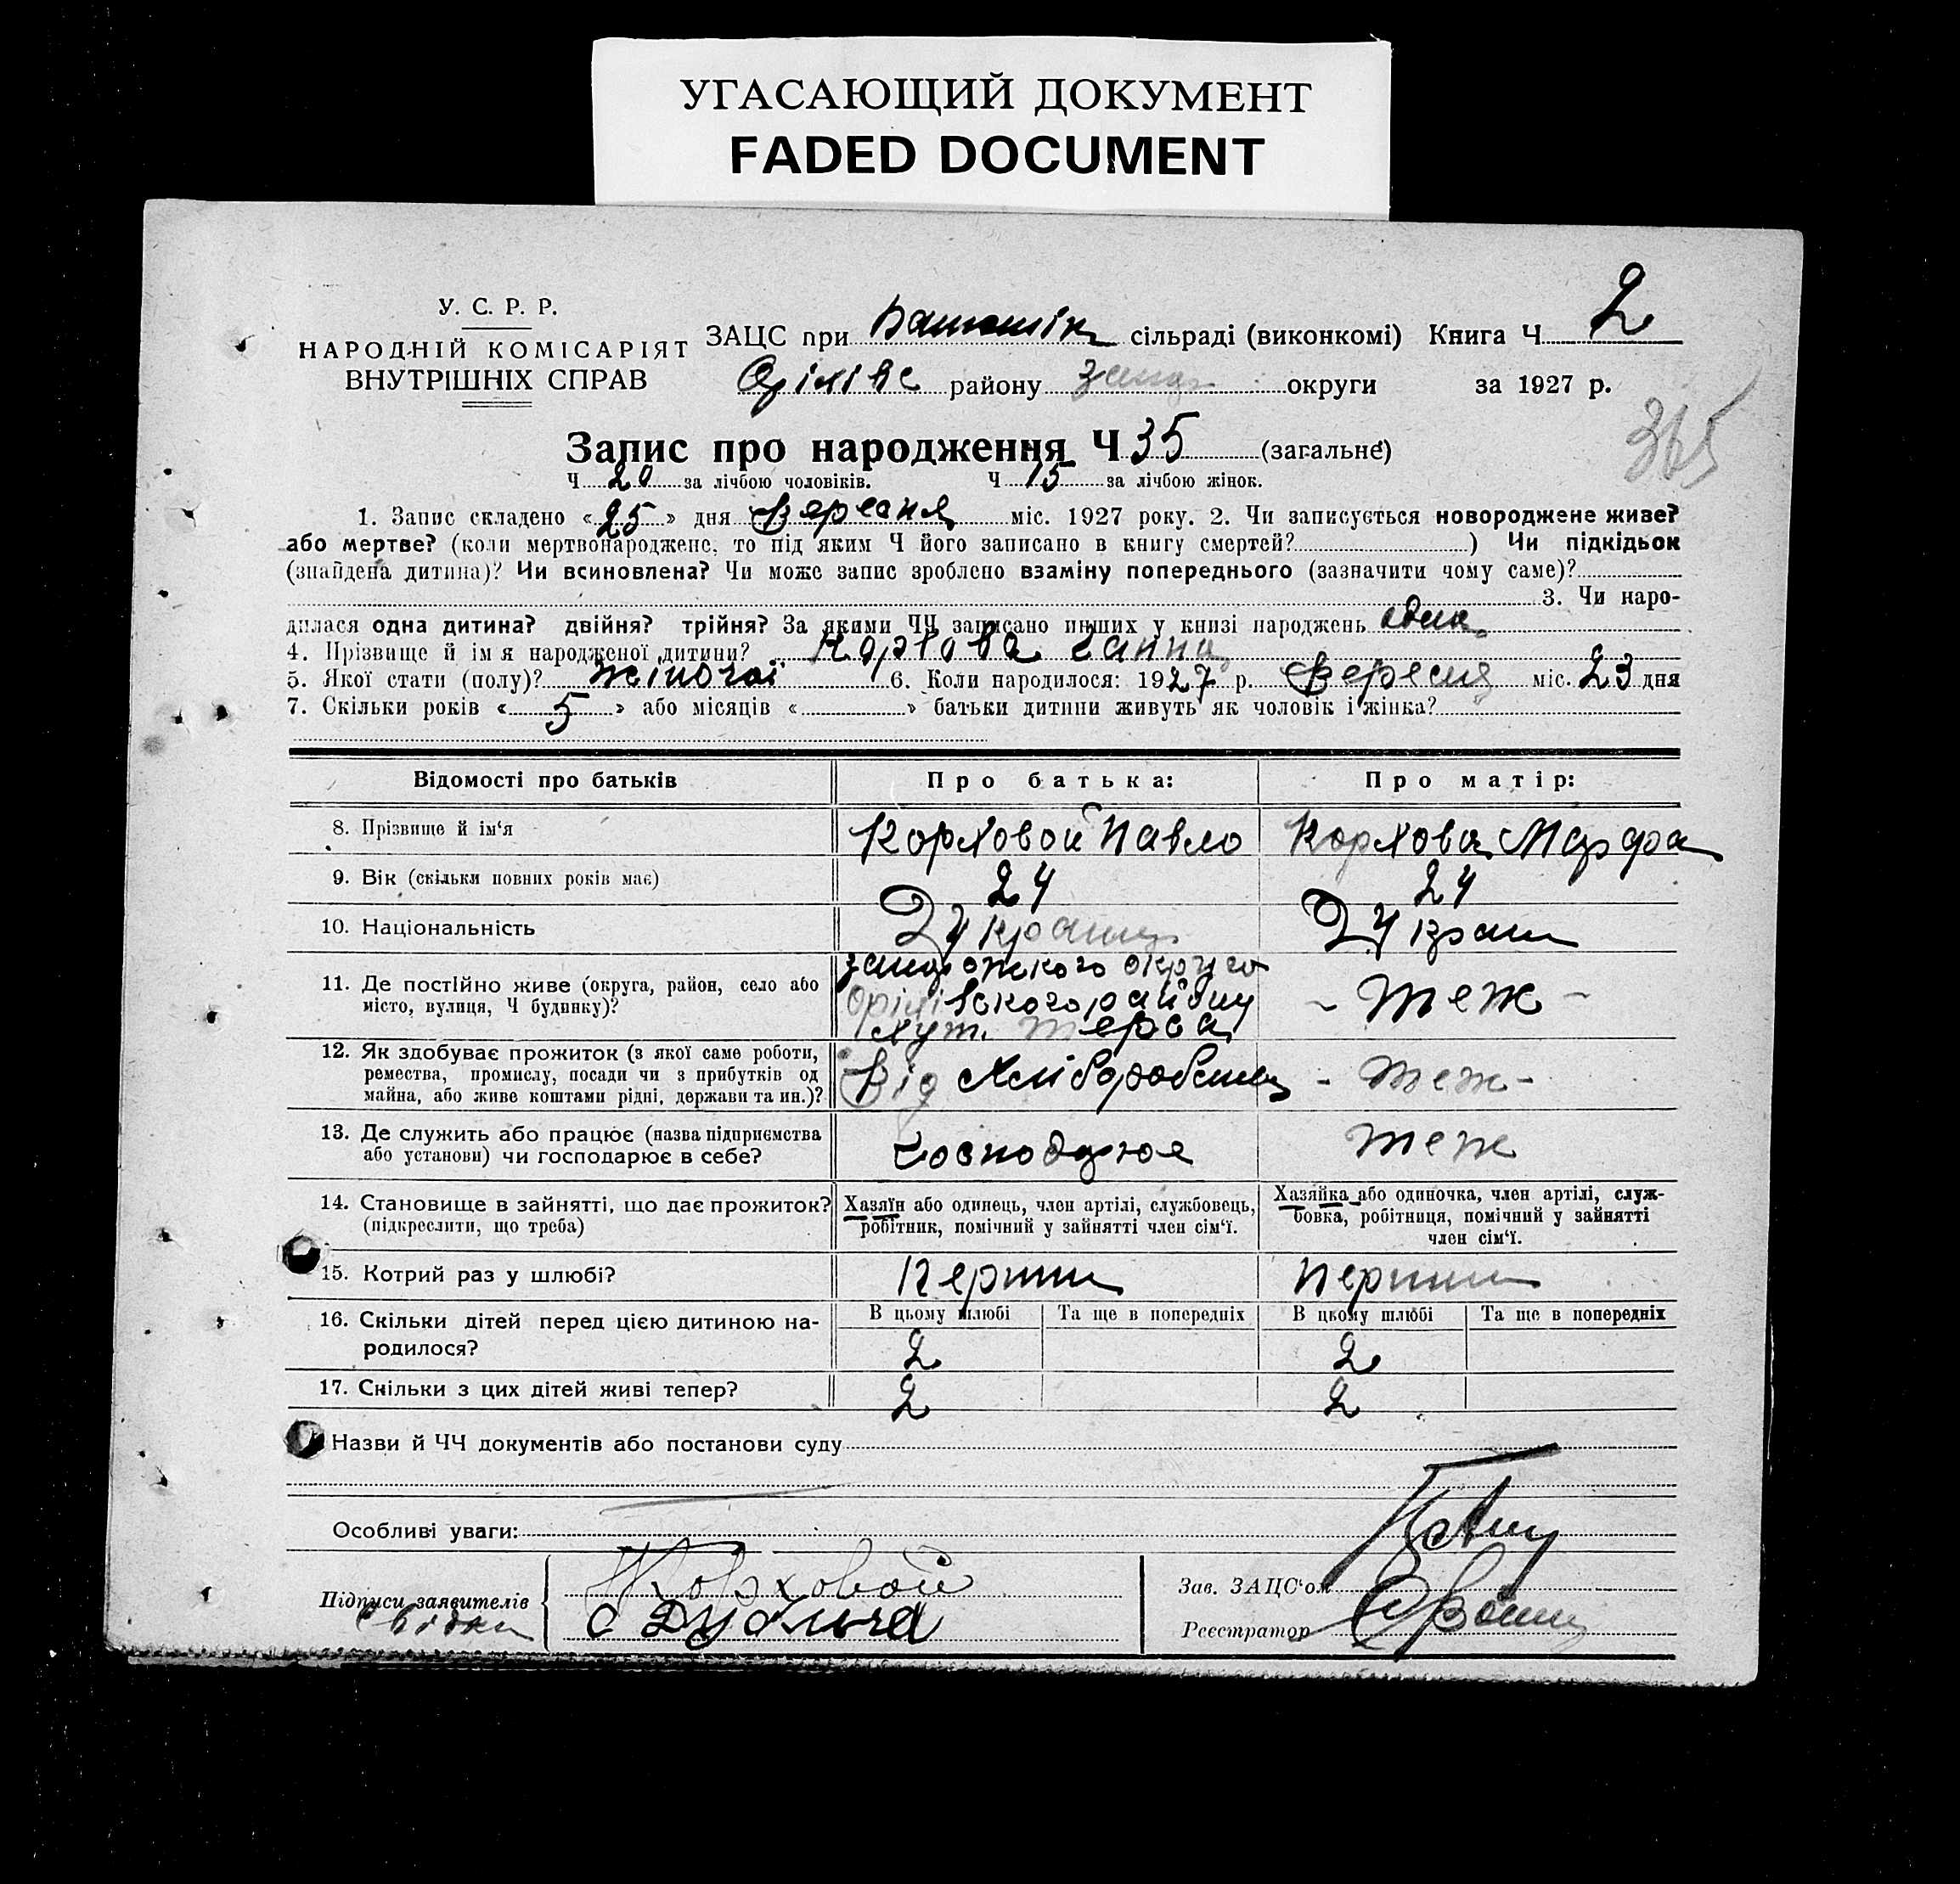 УГАСАЮЩИЙ ДОКУМЕНТ
FADED DOCUMENT
У. С. Р. Р.
НАРОДНІЙ КОМІСАРІЯТ
ВНУТРІШНІХ СПРАВ
ЗАЦС при сільраді (виконкомі) Книга Ч 2
Оріхівс району Запор округи за 1927 р.
365
Запис про народження Ч 35 (загальне)
Ч 20 за лічбою чоловіків. Ч 15 за лічбою жінок.
1. Запис складено « 25 » дня Вересня міс. 1927 року. 2. Чи записується новороджене живе?
або мертве? (коли мертвонароджене, то під яким Ч його записано в книгу смертей? ) Чи підкідьок
(знайдена дитина)? Чи всиновлена? Чи може запис зроблено взаміну попереднього (зазначити чому саме)?
3. Чи наро-
дилася одна дитина? двійня? трійня? За якими ЧЧ записано инших у книзі народжень одна
4. Прізвище й імя народженої дитини? Корхова Ганна
5. Якої стати (полу)? жіночої 6. Коли народилося: 1927 р. Вересня міс. 23 дня
7. Скільки років « 5 » або місяців « » батьки дитини живуть як чоловік і жінка?
Відомості про батьків Про батька: Про матір:
8. Прізвище й ім'я Корховой Павло Корхова Марфа
9. Вік (скільки повних років має) 24 24
10. Національність
11. Де постійно живе (округа, район, село або місто, вулиця, Ч будинку)?
Запорожского округа
Оріхівского району
хут. Терса
- теж -
12. Як здобуває прожиток (з якої саме роботи,
ремества, промислу, посади чи з прибутків од
майна, або живе коштами рідні, держави та ин.)?
Від хліборобства - теж -
13. Де служить або працює (назва підприємства
або установи) чи господарює в себе?
Господарює теж
14. Становище в зайнятті, що дає прожиток?
(підкреслити, що треба)
Хазяїн або одинець, член артілі, службовець,
робітник, помічний у зайнятті член сім'ї.
Хазяйка або одиночка, член артілі, служ-
бовка, робітниця, помічний у зайнятті
член сім'ї.
15. Котрий раз у шлюбі? Перший Перший
16. Скільки дітей перед цією дитиною на-
родилося?
В цьому шлюбі Та ще в попередніх В цьому шлюбі Та ще в попередніх
2 2
17. Скільки з цих дітей живі тепер? 2 2
Назви й ЧЧ документів або постанови суду
Особливі уваги:
Підписи заявителів Корховой
свідки
Зав. ЗАЦС'ом
Реєстратор